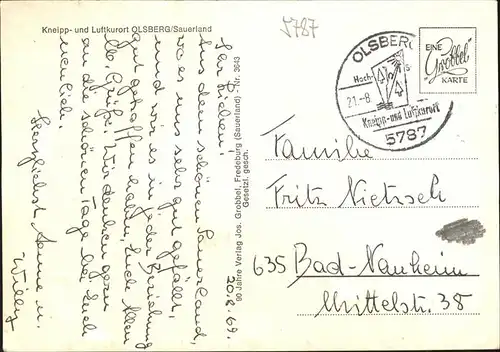 Kneipp- und Luftkurort OLSBERG/Sauerland
5787
20.8.69.
Ihr Lieben!
Aus dem schönen Sauerland,
wo es uns sehr gut gefällt,
und wir es in jeder Beziehung
gut getroffen haben, Euch Allen
lb. Grüße. Wir denken gern
an die schönen Tage bei Euch
Herzlichst Änne u.
Willy
90 Jahre Verlag Jos. Grobbel, Fredeburg (Sauerland) - Nr. 3643
Gesetzl. gesch.
OLSBERG
Hoch-
21.-8.
Kneipp- und Luftkurort
5787
EINE
"Grobbel"
KARTE
Familie
Fritz Nietzsch
635 Bad-Nauheim
Mittelstr. 38